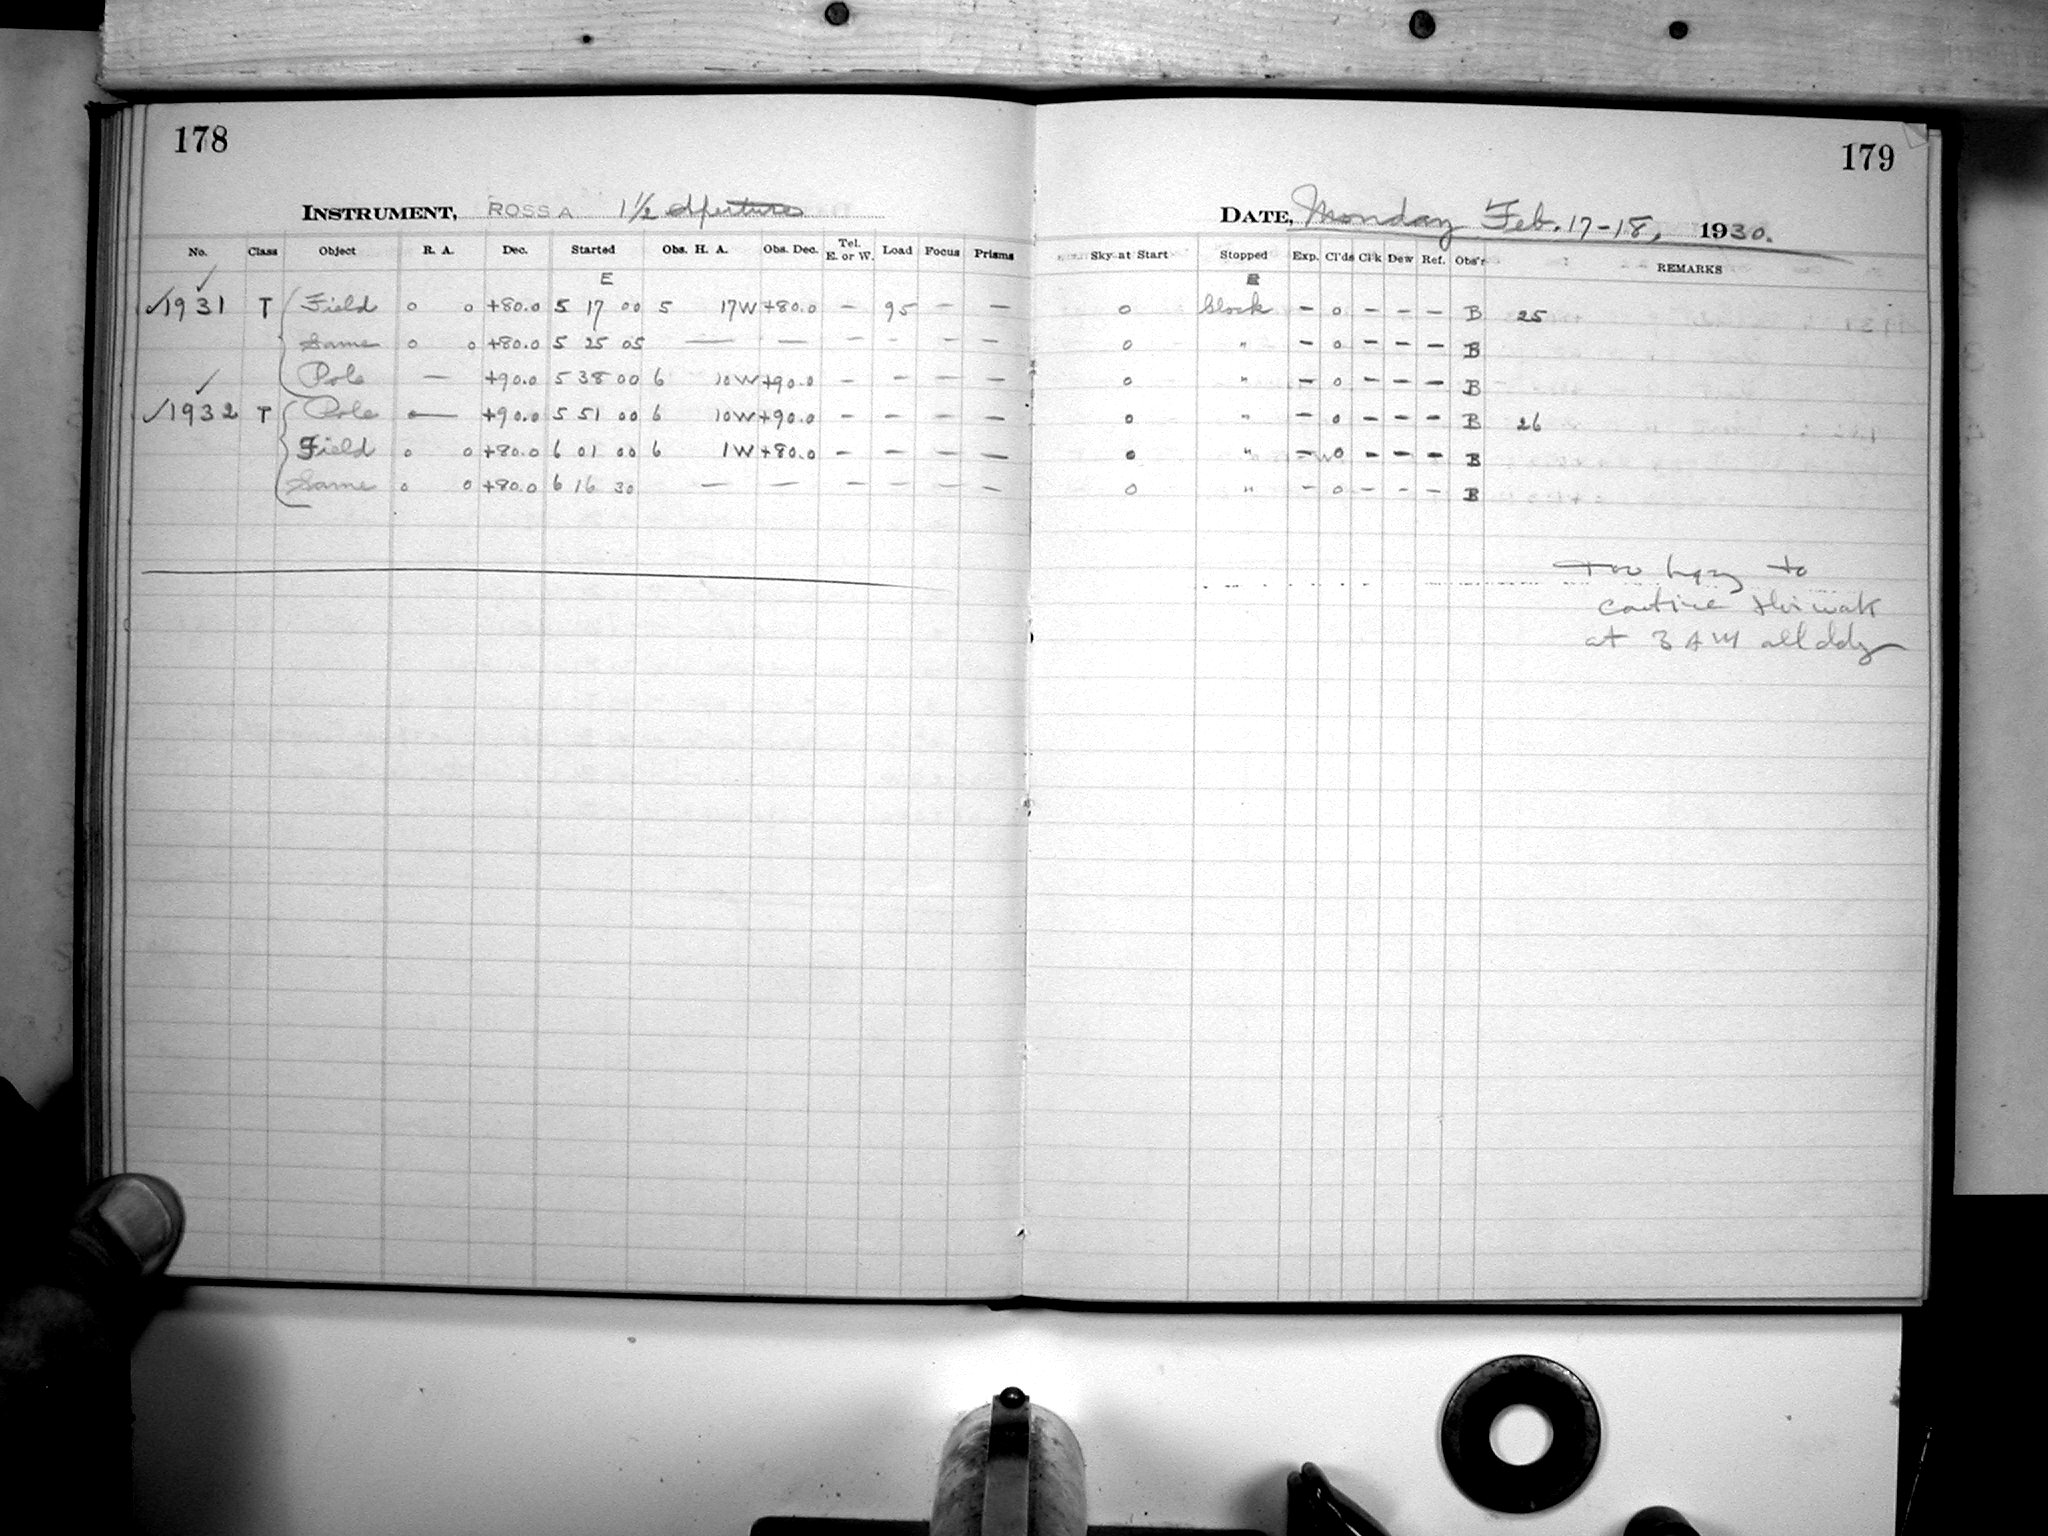 178
179
INSTRUMENT, ROSS A 1½ aperture
DATE, Monday Feb. 17-18, 1930.
No. Class Object R. A. Dec. Started Obs. H. A. Obs. Dec. Tel. E. or W. Load Focus Prisms Sky at Start Stopped Exp. Cl'ds Cl'k Dew Ref. Obs'r REMARKS
E E
✓1931 T Field 0 0 +80.0 5 17 00 5 17W +80.0 — 95 — — 0 Clock — 0 — — — B 25
Same 0 0 +80.0 5 25 05 — — — - — — 0 " — 0 — — — B
Pole — +90.0 5 38 00 6 10W +90.0 — — — — 0 " — 0 — — — B
✓1932 T Pole — +90.0 5 51 00 6 10W +90.0 — — — — 0 " — 0 — — — B 26
Field 0 0 +80.0 6 01 00 6 1W +80.0 — — — — 0 " — 0 — — — B
Same 0 0 +80.0 6 16 30 — — — — — — 0 " — 0 — - — B
Too hazy to
at 3 AM all